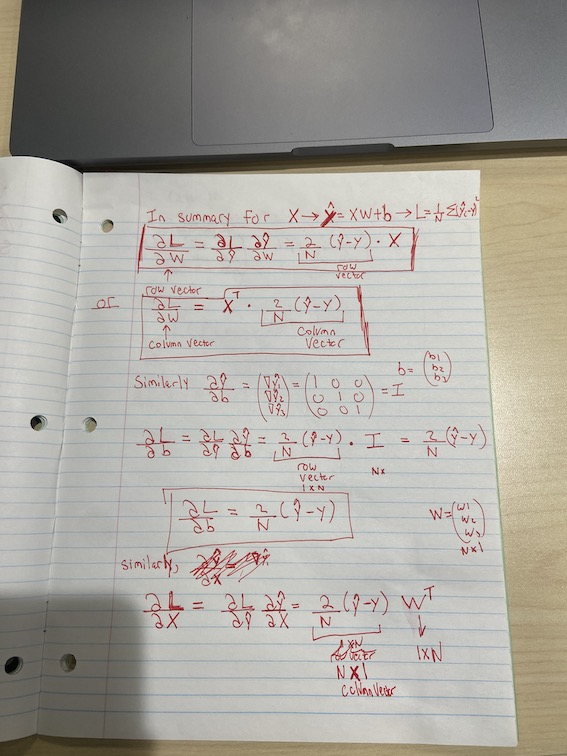 In summary for X → Ŷ = XW+b → L = 1/N Σ(ŷᵢ-y)²
∂L/∂W = ∂L/∂Ŷ ∂Ŷ/∂W = 2/N (Ŷ-Y) · X
row vector
↑
row vector
or ∂L/∂W = Xᵀ · 2/N (Ŷ-Y)
↑
column vector
column vector
Similarly ∂Ŷ/∂b = (∇Ŷ1 ∇Ŷ2 ∇Ŷ3) = (1 0 0 0 1 0 0 0 1) = I
b = (b1 b2 b3)
∂L/∂b = ∂L/∂Ŷ ∂Ŷ/∂b = 2/N (Ŷ-Y) · I = 2/N (Ŷ-Y)
row vector 1xN
Nx
∂L/∂b = 2/N (Ŷ-Y)
W = (W1 W2 W3)
Nx1
similarly,
∂L/∂X = ∂L/∂Ŷ ∂Ŷ/∂X = 2/N (Ŷ-Y) Wᵀ
↓
1xN
1xN
row vector
Nx1
column vector